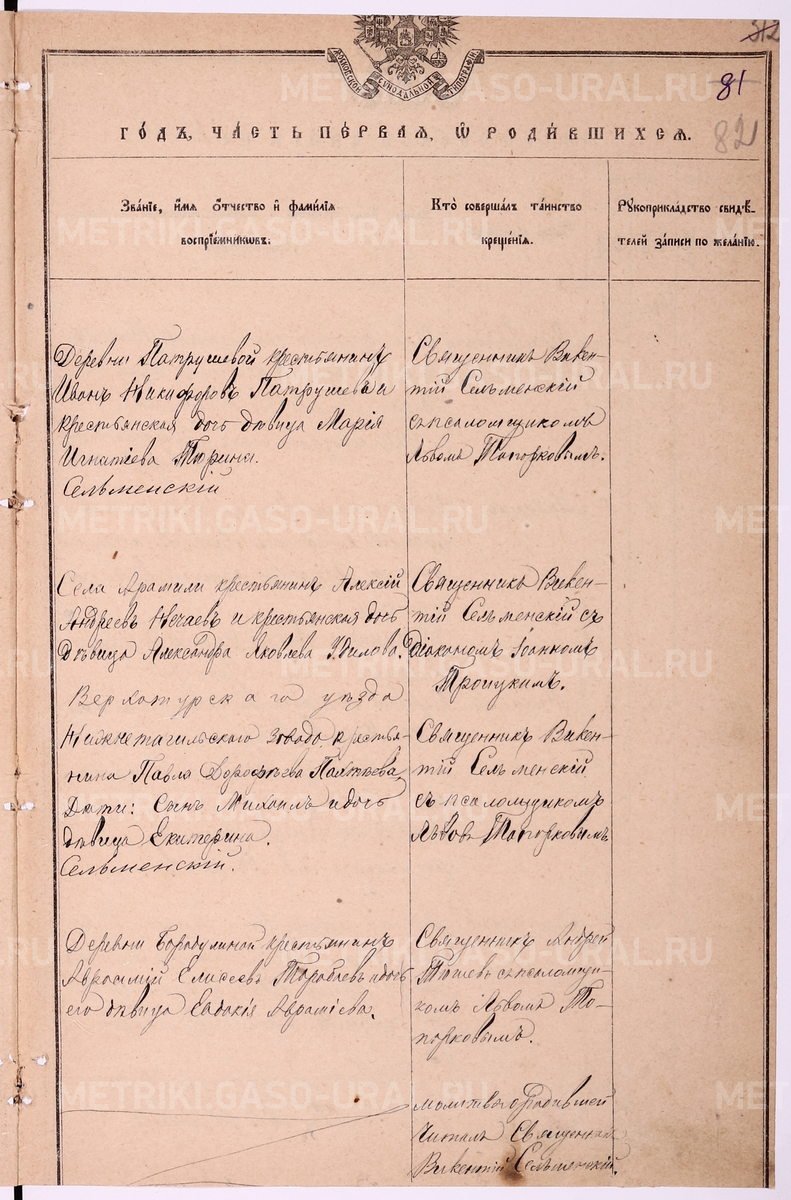 312
81
82
МОСКОВСКОЙ СѴНОДАЛЬНОЙ ТИПОГРАФІИ
ГОДЪ, ЧАСТЬ ПЕРВАЯ, Ѡ РОДИВШИХСЯ.
Званіе, имя отчество и фамилія
воспріемниковъ.
Кто совершалъ таинство
крещенія.
Рукоприкладство свидѣ-
телей записи по желанію.
Деревни Патрушевой крестьянинъ
Иванъ Никифоровъ Патрушевъ и
крестьянская дочь дѣвица Марія
Игнатіева Тюрина.
Сельменскій
Священникъ Викен-
тій Сельменскій
съ псаломщикомъ
Львомъ Топорковымъ.
Села Арамили крестьянинъ Алексій
Андреевъ Нечаевъ и крестьянская дочь
дѣвица Александра Яковлева Удилова.
Священникъ Викен-
тій Сельменскій съ
Діакономъ Іоанномъ
Троицкимъ.
Верхотурскаго уѣзда
Нижнетагильскаго завода, крестья-
нина Павла Дорофѣева
Дѣти: Сынъ Михаилъ и дочь
дѣвица Екатерина.
Сельменскій.
Священникъ Викен-
тій Сельменскій
съ псаломщикомъ
Львомъ Топорковымъ
Деревни Бородулиной крестьянинъ
Авраамій Елисеевъ и дочь
его дѣвица Евдокія Авраміева.
Священникъ Андрей
съ псаломщи-
комъ Львомъ То-
порковымъ.
Молитву родившей
Читалъ Священникъ
Викентій Сельменскій.
METRIKI.GASO-URAL.RU